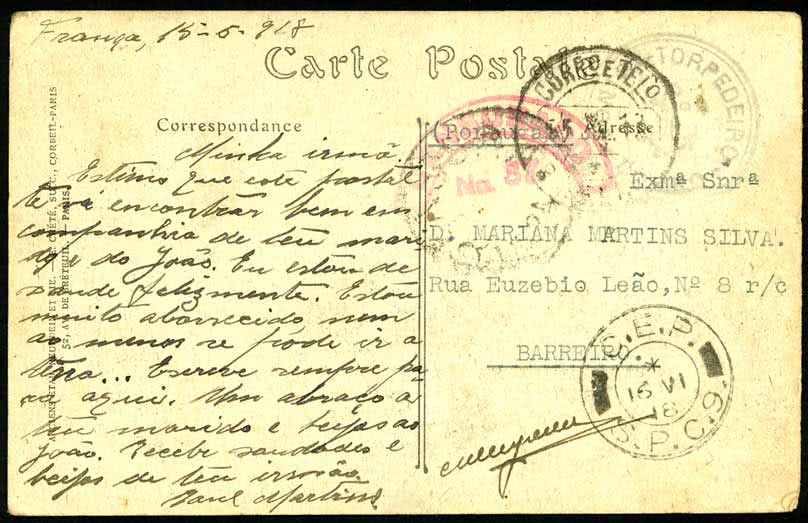 França, 15-5-918
Carte Postale
Correspondance
Minha irmã
Estimo que este postal
te vá encontrar bem em
companhia de teu mari
do e do João. Eu estou de
saude felizmente. Estou
muito aborrecido nem
ao menos se pode ir a
terra... Escreve sempre pa
ra aqui. Um abraço a
teu marido e beijos ao
João. Recebe saudades e
beijos de teu irmão
Raul Martins
CRÉTÉ, SUCC., CORBEIL-PARIS
52, AV. DE BRETEUIL, PARIS
(Portugal)
Adresse
Exmª Snrª
D. MARIANA MARTINS SILVA.
Rua Euzebio Leão, Nº 8 r/c
BARREIRO.
No.
CORRº E TELº
TORPEDEIRO
C.E.P.
*
16 VI
18
S.P.C. 9.